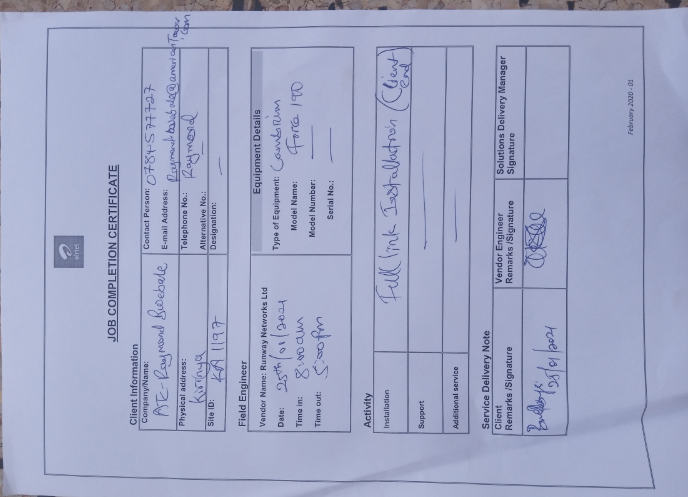 airtel
JOB COMPLETION CERTIFICATE
Client Information
Company/Name:
ATC-Raymond Bwebale
Contact Person: 0784577727
E-mail Address:
Physical address:
Kirinya
Telephone No.:
Raymond
Alternative No.: —
Site ID: KA 1197
Designation: —
Field Engineer
Vendor Name: Runway Networks Ltd
Date: 25th/01/2021
Time in: 8:00am
Time out: 5:00pm
Equipment Details
Type of Equipment: Cambium
Model Name: Force 190
Model Number: —
Serial No.: —
Activity
Installation
Full link Installation (Client end
Support —
Additional service —
Service Delivery Note
Client
Remarks /Signature
25/01/2021
Vendor Engineer
Remarks /Signature
Solutions Delivery Manager
Signature
February 2020 - 01